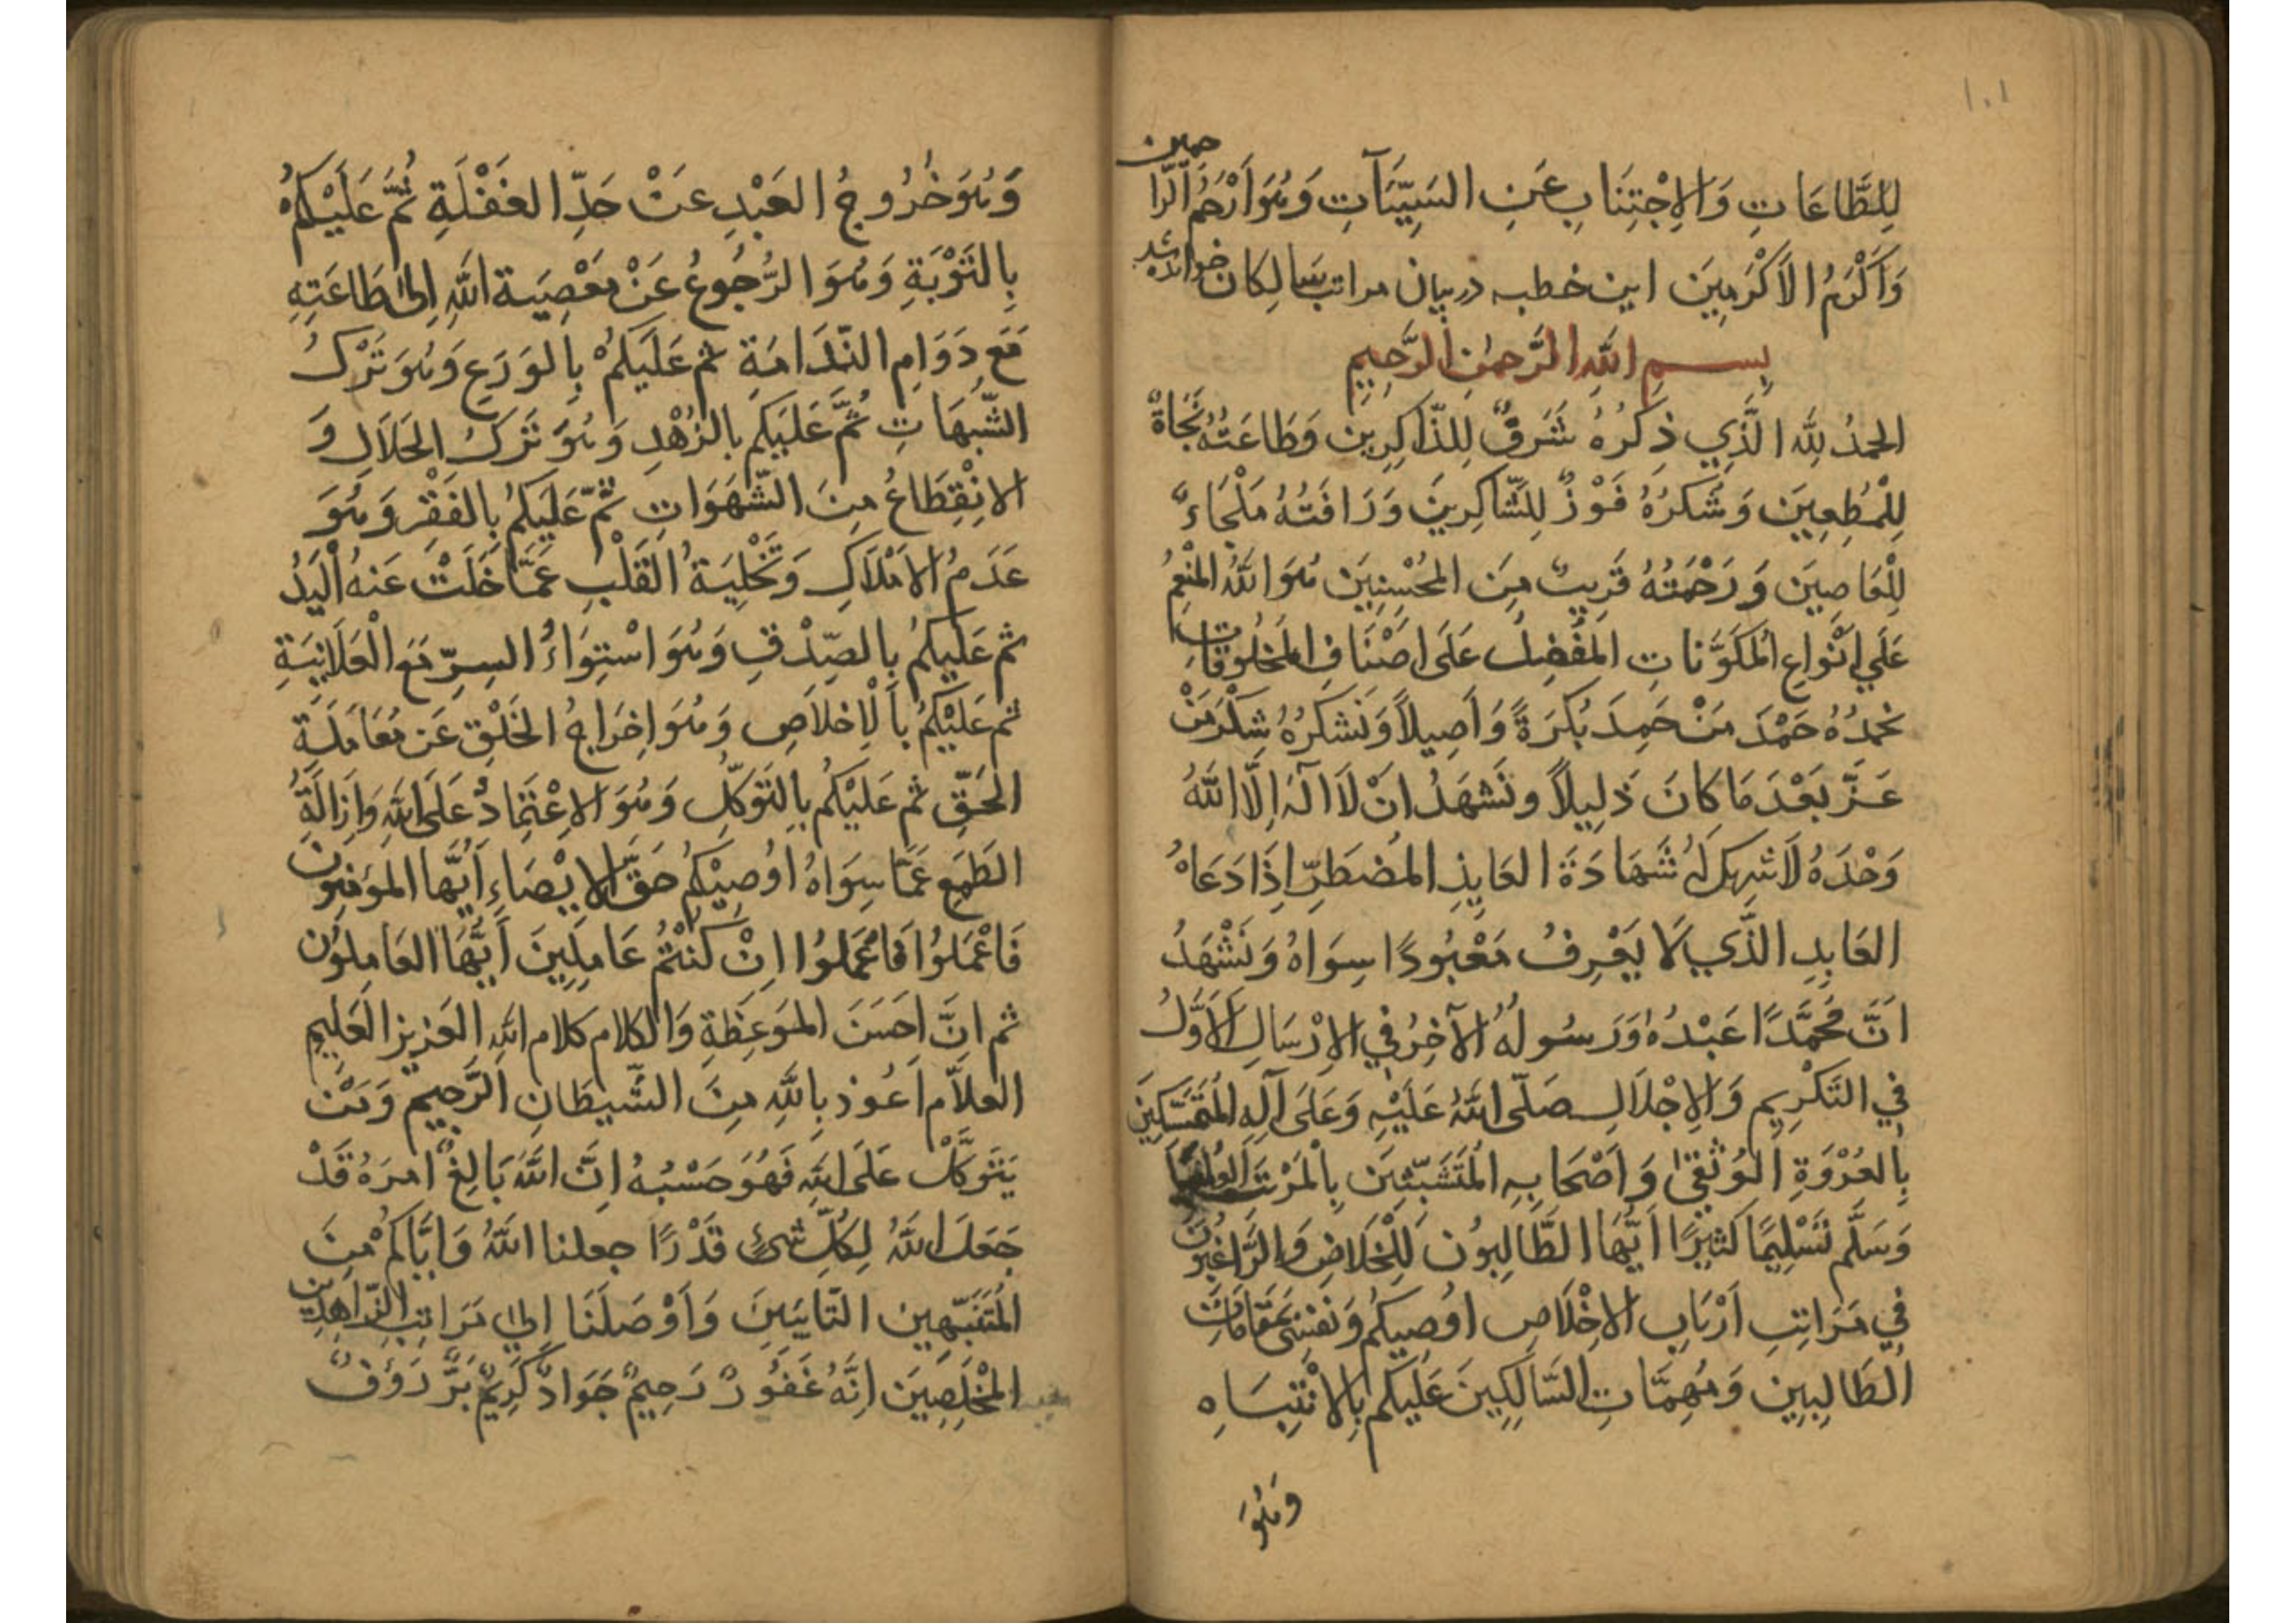 ١٠١
لِلطَّاعَاتِ وَالاِجْتِنَابِ عَنِ السَيِّئَآتِ وَهُوَ اَرْحَمُ الرَّا
حمين
وَاَكْرَمُ الاَكْرَمِيَن این خطبه در بیان مراتب سالکان خوانده شد
بِســـمِ اللهِ الرَّحمٰنِ الرَّحِيمِ
الحمدُ لِلّٰه الَّذِي ذِكرُهُ شَرَفٌ لِلذّاكِرِين وَطَاعَتُهُ نَجَاةٌ
لِلْمُطِعِيَن وَشُكرُهُ فَوْزٌ لِلشّاكِرِينَ وَرَافَتُهُ مَلْجَاءٌ
لِلْعَاصِيَن وَرَحْمَتُهُ قَرِيبٌ مِنَ المحُسِْنِيَن هُوَ اللهُ المنُْعِمُ
عَلَي اَنْوَاعِ المُكَوَّنَاتِ المُفْضِلُ عَلَى اَصْنَافِ المَخلُوقَاتِ
نحمَدُهُ حَمْدَ مَنْ حَمِدَ بُكرَةً وَاَصِيلاً وَنَشكرُهُ شُكْرَ مَنْ
عَـزَّ بَعْدَ مَا كَانَ ذَلِيلاً ونَشهَدُ انَْ لاَ الٓهَ اِلَّا اللهُ
وَحْدَهُ لاَ شريكَ لَهُ شَهَادَةَ العَايِذِ المُضطَرِّ اِذَا دَعَاهُ
العَابِدِ الذَّي لاَ يَعْرِفُ مَعْبُودًا سِوَاهُ وَنَشْهَدُ
انََّ مُحَمَّدًا عَبْدُهُ وَرَسُولُهُ الآخِرُ فِي الاِرْسَالِ الاَوَّلُ
فِي التَكْرِيمِ وَالاِجْلاَلِ صَلّى اللهُ عَلَيْهِ وَعَلَى آلِهِ المُتَمَسِّكِينَ
بِالعُرْوَةِ الوُثْقٰى وَاَصْحَابِهِ المُتَشَبِّثِيَن بِالْمَرْتَبَةِ العُلْيَا
وَسَلَّم تَسْلِيمًا كَثِيرًا اَيُّهَا الطَّالِبُون لِلْخَلاَصِ وَالرَّاغِبُونَ
فِي مَرَاتِبِ اَرْبَابِ الاِخْلَاصِ اوُصِيكُم وَنَفْسِى بمَقَامَاتِ
الطَالِبِين وَمُهِمَّاتِ السَّالِكِينَ عَلَيكم بِالاِنْتِبَاهِ
وَهُوَ
وَهُوَ خُرُوجُ العَبْدِ عَنْ حَدِّ الغَفْلَةِ ثُمَّ عَلَيْكُم
بِالتَوْبَةِ وَهُوَ الرُّجُوعُ عَنْ مَعْصِيَةِ اللهِ اِلىٰ طَاعَتِهِ
مَعَ دَوَامِ النّدَامَةِ ثم عَلَيكمُْ بِالوَرَعِ وَهُوَ تَرْكُ
الشّبُهَاتِ ثُمَّ عَلَيكم بِالزُهْدِ وَهُوَ تَركُ الحَلاَلِ وَ
الاِنْقِطَاعُ مِنَ الشّهَوَاتِ ثمّ عَلَيكمُ بِالفَقْرِ وَهُوَ
عَدَمُ الاَمْلاَكِ وَتَخْلِيَةُ القَلْبِ عَمَّا خَلَتْ عَنهُ اْليَدُ
ثم عَلَيكمُ بِالصِّدْقِ وَهُوَ اسْتِوَاءُ السِرِّ مَعَ الْعَلاَنِيَةِ
ثم عَلَيْكمُ بِالْاِخلاَصِ وَهُوَ اِخرَاجُ الخَلْقِ عَن مُعَامَلَةِ
الحَقِّ ثم عَلَيْكُم بِالتَوَكّلِ وَهُوَ الاِعْتِمَادُ عَلَى اللهِ وَاِزَالَةُ
الطَمِعِ عَمَّا سِوَاهُ اوُصِيْكُم حَقَّ الاِيْصَاءِ اَيُّهَا المؤمِنُونَ
فَاعْمَلُوا فَاعْمَلوُا اِنْ كُنْتُم عَامِلِينَ اَيُّهَا العَامِلوُن
ثم انَّ اَحسَنَ الموَعِظَةِ وَالكلام كلام اللهِ العَزيز العَلِيمِ
العلاَّم اَعُوذ بِاللهِ مِنَ الشّيطَانِ الرَّجِيمِ وَمَنْ
يَتَوَكَّلْ عَلَى اللهِ فَهُوَ حَسْبُهُ اِنَّ اللهَ بَالِغُ امرَهُ قَدْ
جَعَلَ اللهُ لِكُلِّ شَيءٍ قَدْرًا جعلنا اللهُ وَايَّاكمُ مِنَ
المُتَنَبِّهِين التَّايبِيَن وَاَوْصَلَنَا اِلىٰ مَرَاتِبِ الزّاهِدِين
المُخْلِصِيَن اِنَّهُ غَفُورٌ رَحِيمٌ جَوَادٌ كَرِيمٌ بَرٌّ رَؤُفٌ